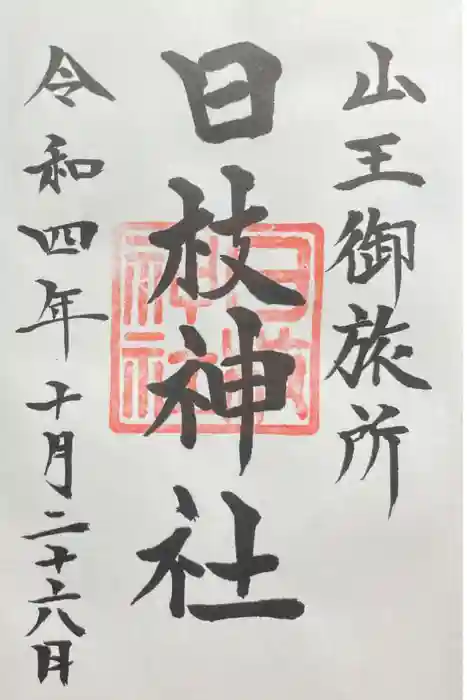 山王御旅所
日枝神社
日枝神社
令和四年十月二十六日